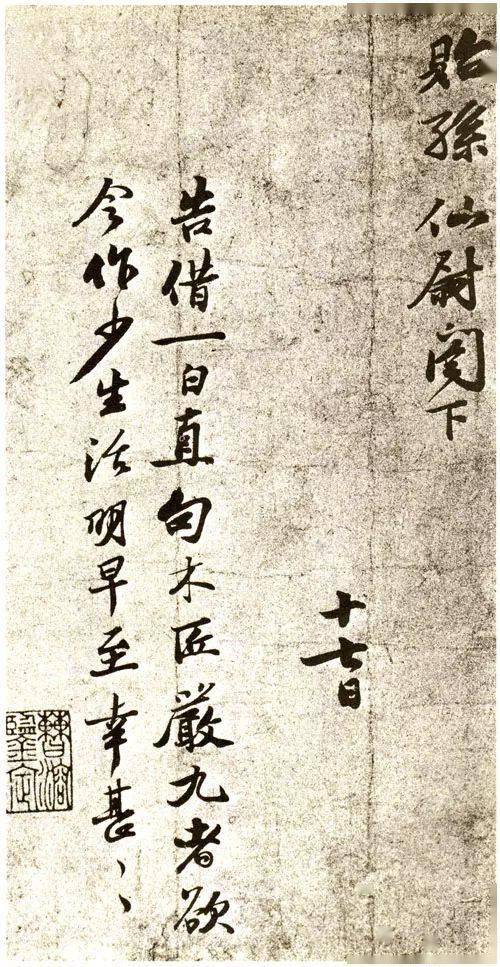 貽孫仙尉閣下
十七日
告借一日直句木匠嚴九者欲
令作少生活明早至幸甚〻〻
曹溶
鑒定